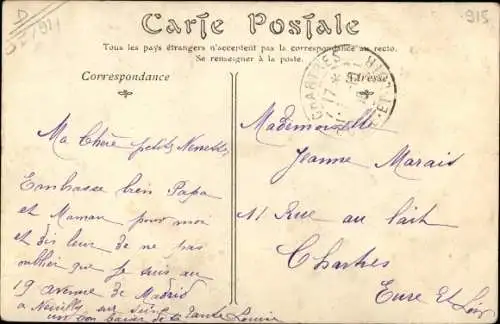 Carte Postale
Tous les pays étrangers n'acceptent pas la correspondance au recto.
Se renseigner à la poste.
Correspondance
Adresse
915
CHARTRES
Ma Chère petite Nénette
Embrasse bien Papa
et Maman pour moi
et dis leur de ne pas
oublier que je suis au
19 avenue de Madrid
a Neuilly sur Seine
un bon baiser de la Tante Louise
Mademoiselle
Jeanne Marais
11 Rue au Lait
Chartres
Eure et Loir